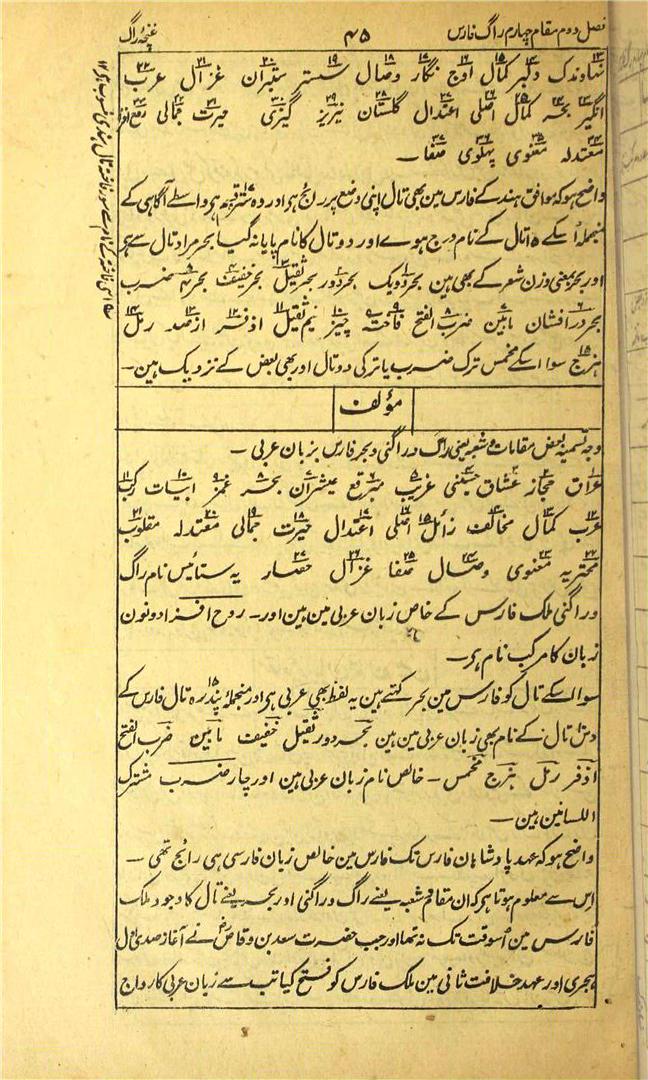 فصل دوم مقام چہارم راگ فارس ۴۵ غنچۂ راگ
۱۳ نہاوندک ۱۴ دلبر ۱۵ کمال ۱۶ اوج ۱۷ نگار ۱۸ وصال ۱۹ سستر ۲۰ ستبران ۲۱ غزال ۲۲ عرب
انگیز بحر کمال اصلی اعتدال گلستان نیریز گیزی حیرت جمالی
معتدلہ معنوی پہلوی صفا ۔
واضح ہو کہ موافق ہند کے فارس مین بھی تال اپنی وضع پر رائج ہر اور وہ سترہ قسم ہر واسطے آگاہی کے
منجملہ اُسکے ۱۵ تال کے نام درج ہوے اور دو تال کا نام پایا نہ گیا بحر مراد تال سے ہر
اور بحر بمعنی وزن شعر کے بھی ہین بحر دویک بحر دور بحر ثقیل بحر خفیف بحر ضرب
بحر درافشان مابین ضرب الفتح فاختہ چپز نیم ثقیل اذفر ازصد رمل
ہزج سوا اسکے مخمس ترک ضرب یا ترکی دو تال اور بھی بعض کے نزدیک ہین ۔
مؤلف
وجہ تسمیہ بعض مقامات و شعبہ یعنی راگ و راگنی و بحر فارس بزبان عربی ۔
عراق حجاز عشاق حسینی غریب مبرقع عیشران بحر غمز ابیات رکب
عرب کمال مخالف زائل اصلی اعتدال حیرت جمالی معتدلہ مقلوب
مختریہ معنوی وصال صفا غزال حصار یہ ستائیس نام راگ
و راگنی ملک فارس کے خاص زبان عربی مین ہین اور ۔ روح افزا دونون
زبان کا مرکب نام ہر ۔
سوا اسکے تال کو فارس مین بحر کہتے ہین یہ لفظ بھی عربی ہر اور منجملہ پندرہ ۱۵ تال فارس کے
دس تال کے نام بھی زبان عربی مین ہین بحر دور ثقیل خفیف مابین ضرب الفتح
اذفر رمل ہزج مخمس ۔ خالص نام زبان عربی ہین اور چار ضرب مشترک
اللسانین ہین ۔
واضح ہو کہ عہد پادشاہان فارس تک فارس مین خالص زبان فارسی ہی رائج تھی ۔
اِس سے معلوم ہوتا ہر کہ ان مقام و شعبہ یعنے راگ و راگنی اور بحر یعنے تال کا وجود ملک
فارس مین اُسوقت تک نہ تھا اور جب حضرت سعد بن وقاص نے آغاز صدی اول
ہجری اور عہد خلافت ثانی مین ملک فارس کو فتح کیا تب سے زبان عربی کا رواج